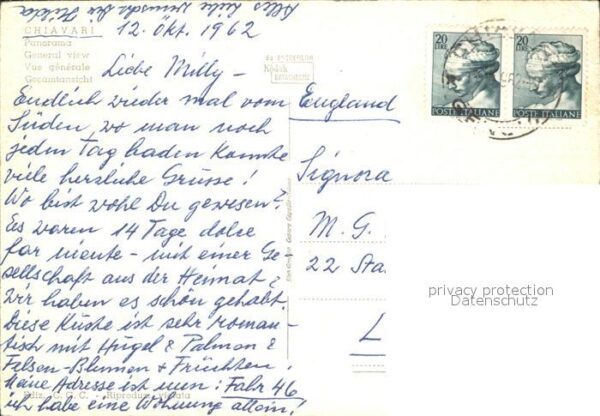 Alles Liebe wünscht Dir Hilda
12. Okt. 1962
CHIAVARI
Panorama
General view
Vue générale
Gesamtansicht
DA EKTACOLOR
Kodak
EKTACHROME
20
LIRE
POSTE ITALIANE
20
LIRE
POSTE ITALIANE
Liebe Milly –
Endlich wieder mal vom
Süden, wo man noch
jeden Tag baden konnte
viele herzliche Grüsse!
Wo bist wohl Du gewesen?
Es waren 14 Tage dolce
far niente – mit einer Ge-
sellschaft aus der Heimat &
wir haben es schön gehabt.
Diese Küste ist sehr roman-
tisch mit Hügel & Palmen &
Felsen – Blumen + Früchten!
Meine Adresse ist nun: Fahr 46
ich habe eine Wohnung allein!
Ediz. C. G. C. - Riproduz. vietata
England
Signora
M. G.
22 Sta
L
privacy protection
Datenschutz